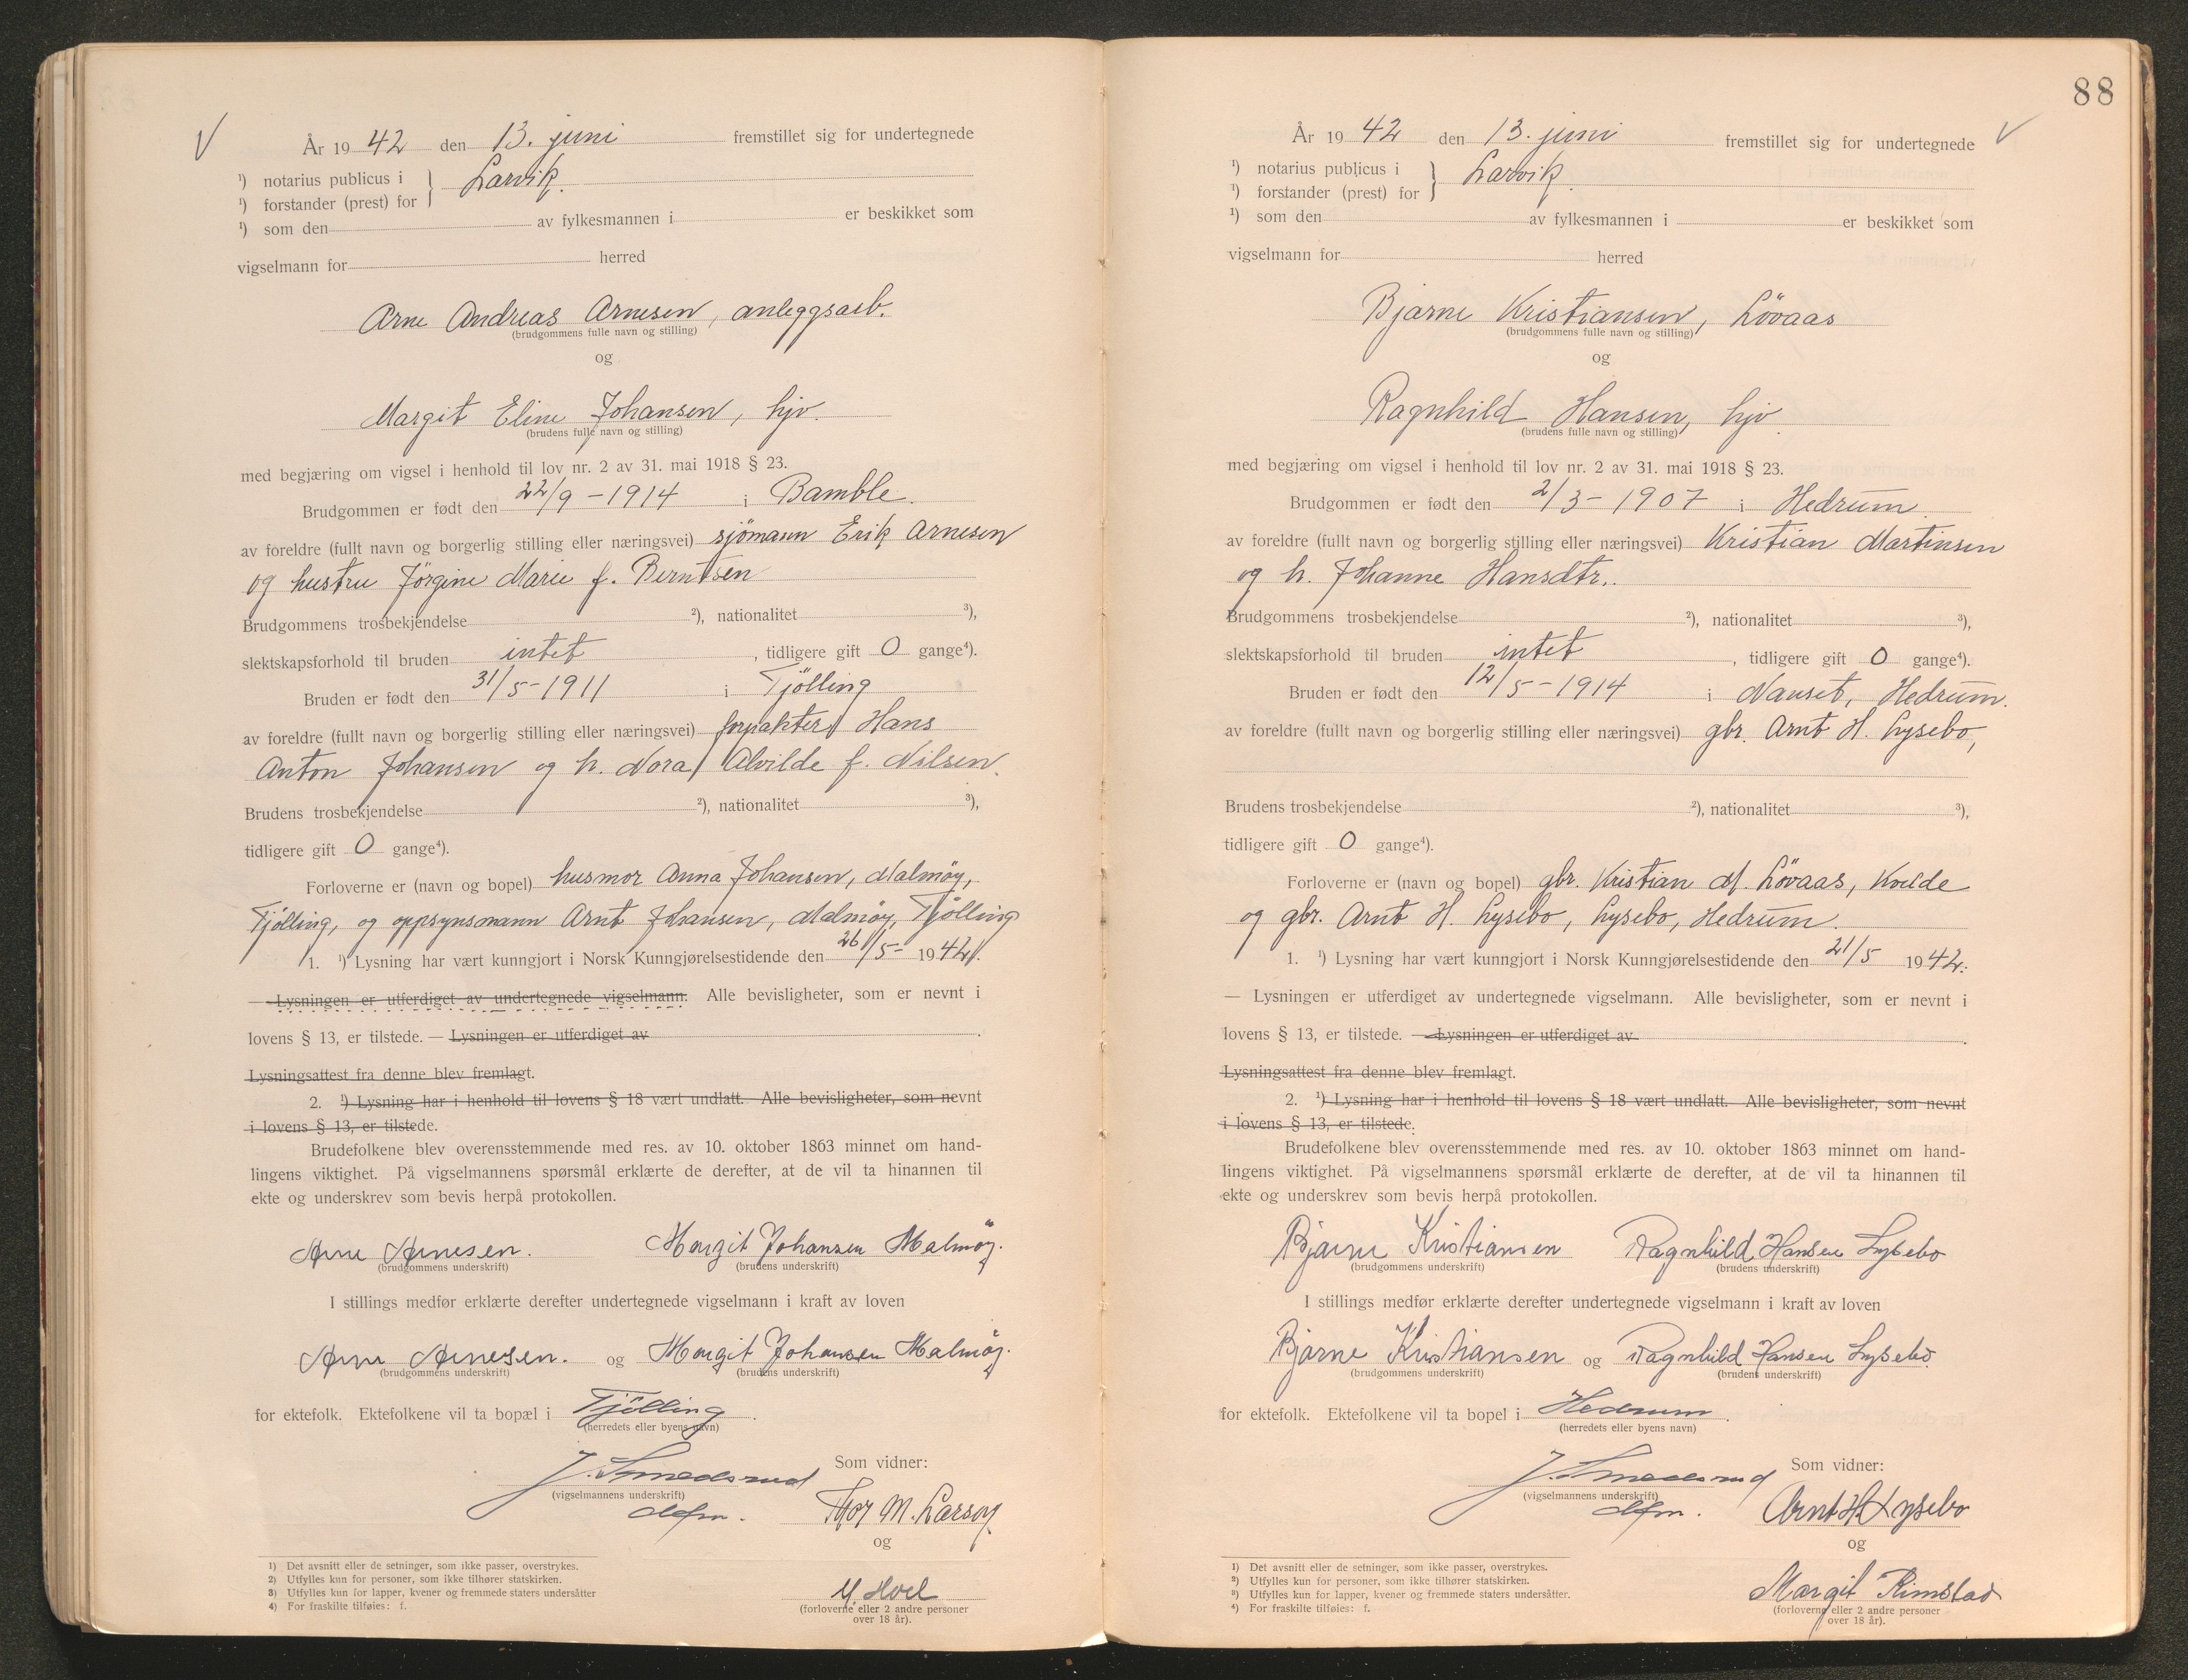 År 19 42 den 13. juni fremstillet sig for undertegnede
¹) notarius publicus i } Larvik.
¹) forstander (prest) for
¹) som den av fylkesmannen i er beskikket som
vigselmann for herred
Arne Andreas Arnesen, anleggsarb.
(brudgommens fulle navn og stilling)
og
Margit Eline Johansen, hjv.
(brudens fulle navn og stilling)
med begjæring om vigsel i henhold til lov nr. 2 av 31. mai 1918 § 23.
Brudgommen er født den 22/9 - 1914 i Bamble.
av foreldre (fullt navn og borgerlig stilling eller næringsvei) sjömann Erik Arnesen
og hustru Jörgine Marie f. Berntsen
Brudgommens trosbekjendelse ²), nationalitet ³),
slektskapsforhold til bruden intet, tidligere gift 0 gange⁴).
Bruden er født den 31/5 - 1911 i Tjölling
av foreldre (fullt navn og borgerlig stilling eller næringsvei) forpakter Hans
Anton Johansen og h. Nora Alvilde f. Nilsen.
Brudens trosbekjendelse ²), nationalitet ³),
tidligere gift 0 gange⁴).
Forloverne er (navn og bopel) husmor Anna Johansen, Malmöy,
Tjölling, og oppsynsmann Arnt Johansen, Malmöy, Tjölling
1. ¹) Lysning har vært kunngjort i Norsk Kunngjørelsestidende den 26/5- 19 42.
— Lysningen er utferdiget av undertegnede vigselmann. Alle bevisligheter, som er nevnt i
lovens § 13, er tilstede. — Lysningen er utferdiget av .
Lysningsattest fra denne blev fremlagt.
2. ¹) Lysning har i henhold til lovens § 18 vært undlatt. Alle bevisligheter, som nevnt
i lovens § 13, er tilstede.
Brudefolkene blev overensstemmende med res. av 10. oktober 1863 minnet om hand-
lingens viktighet. På vigselmannens spørsmål erklærte de derefter, at de vil ta hinannen til
ekte og underskrev som bevis herpå protokollen.
Arne Arnesen. Margit Johansen Malmöy.
(brudgommens underskrift) (brudens underskrift)
I stillings medfør erklærte derefter undertegnede vigselmann i kraft av loven
Arne Arnesen. og Margit Johansen Malmöy.
(brudgommens underskrift) (brudens underskrift)
for ektefolk. Ektefolkene vil ta bopæl i Tjölling.
(herredets eller byens navn)
J. Smedsrud Som vidner:
(vigselmannens underskrift)
Thor M. Larsen
og
M. Hoel
(forloverne eller 2 andre personer
over 18 år).
1) Det avsnitt eller de setninger, som ikke passer, overstrykes.
2) Utfylles kun for personer, som ikke tilhører statskirken.
3) Utfylles kun for lapper, kvener og fremmede staters undersåtter
4) For fraskilte tilføies: f.
88
År 19 42 den 13. juni fremstillet sig for undertegnede
¹) notarius publicus i } Larvik.
¹) forstander (prest) for
¹) som den av fylkesmannen i er beskikket som
vigselmann for herred
Bjarne Kristiansen, Lövaas
(brudgommens fulle navn og stilling)
og
Ragnhild Hansen, hjv.
(brudens fulle navn og stilling)
med begjæring om vigsel i henhold til lov nr. 2 av 31. mai 1918 § 23.
Brudgommen er født den 2/3 - 1907 i Hedrum.
av foreldre (fullt navn og borgerlig stilling eller næringsvei) Kristian Martinsen
og h. Johanne Hansdtr.
Brudgommens trosbekjendelse ²), nationalitet ³),
slektskapsforhold til bruden intet, tidligere gift 0 gange⁴).
Bruden er født den 12/5 - 1914 i Nanset, Hedrum.
av foreldre (fullt navn og borgerlig stilling eller næringsvei) gbr. Arnt H. Lysebo,
Brudens trosbekjendelse ²), nationalitet ³),
tidligere gift 0 gange⁴).
Forloverne er (navn og bopel) gbr. Kristian M. Lövaas, Kvelde
og gbr. Arnt H. Lysebo, Lysebo, Hedrum.
1. ¹) Lysning har vært kunngjort i Norsk Kunngjørelsestidende den 21/5 19 42.
— Lysningen er utferdiget av undertegnede vigselmann. Alle bevisligheter, som er nevnt i
lovens § 13, er tilstede. — Lysningen er utferdiget av .
Lysningsattest fra denne blev fremlagt.
2. ¹) Lysning har i henhold til lovens § 18 vært undlatt. Alle bevisligheter, som nevnt
i lovens § 13, er tilstede.
Brudefolkene blev overensstemmende med res. av 10. oktober 1863 minnet om hand-
lingens viktighet. På vigselmannens spørsmål erklærte de derefter, at de vil ta hinannen til
ekte og underskrev som bevis herpå protokollen.
Bjarne Kristiansen Ragnhild Hansen Lysebo
(brudgommens underskrift) (brudens underskrift)
I stillings medfør erklærte derefter undertegnede vigselmann i kraft av loven
Bjarne Kristiansen og Ragnhild Hansen Lysebo.
(brudgommens underskrift) (brudens underskrift)
for ektefolk. Ektefolkene vil ta bopel i Hedrum.
(herredets eller byens navn)
J. Smedsrud Som vidner:
(vigselmannens underskrift)
Arnt H. Lysebo
og
Margit Rimstad
(forloverne eller 2 andre personer
over 18 år).
1) Det avsnitt eller de setninger, som ikke passer, overstrykes.
2) Utfylles kun for personer, som ikke tilhører statskirken.
3) Utfylles kun for lapper, kvener og fremmede staters undersåtter.
4) For fraskilte tilføies: f.